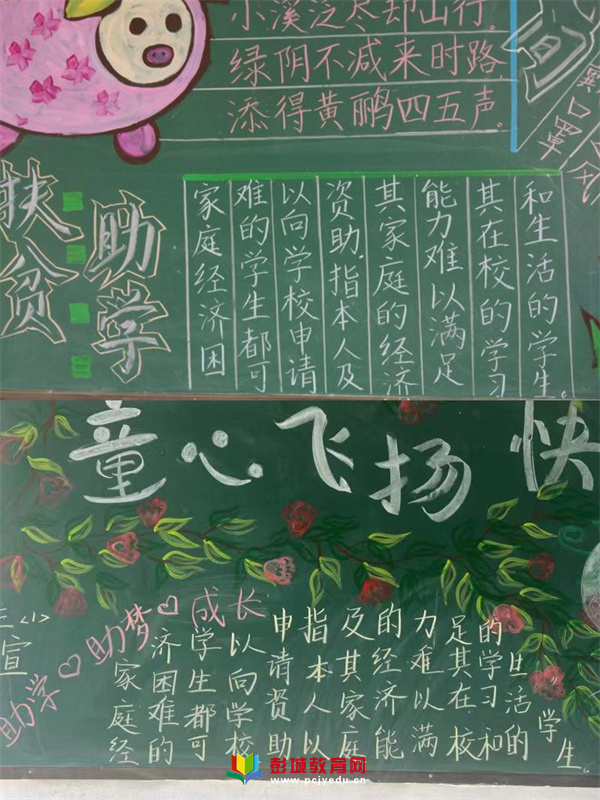 小溪泛尽却山行。
绿阴不减来时路
添得黄鹏四五声。
口罩
扶贫
助学
家庭经济困
难的学生都可
以向学校申请
资助.指本人及
其家庭的经济
能力难以满足
其在校的学习
和生活的学生。
童心飞扬 快
<1>
宣
助学♡助梦♡成长
家庭经
济困难的
学生都可
以向学校
申请资助
指本人以
及其家庭
的经济能
力难以满
足其在校
的学习和
生活的
学生
彭城教育网